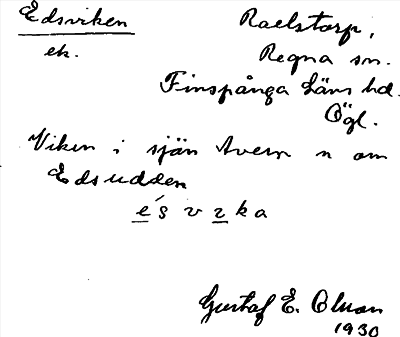 Edsviken
ek.
Raelstorp,
Regna sn.
Finspånga Läns hd.
Ögl.
Viken i sjön Avern n om
Edsudden
e´s v ɩ k a
Gustaf E. Olson
1930